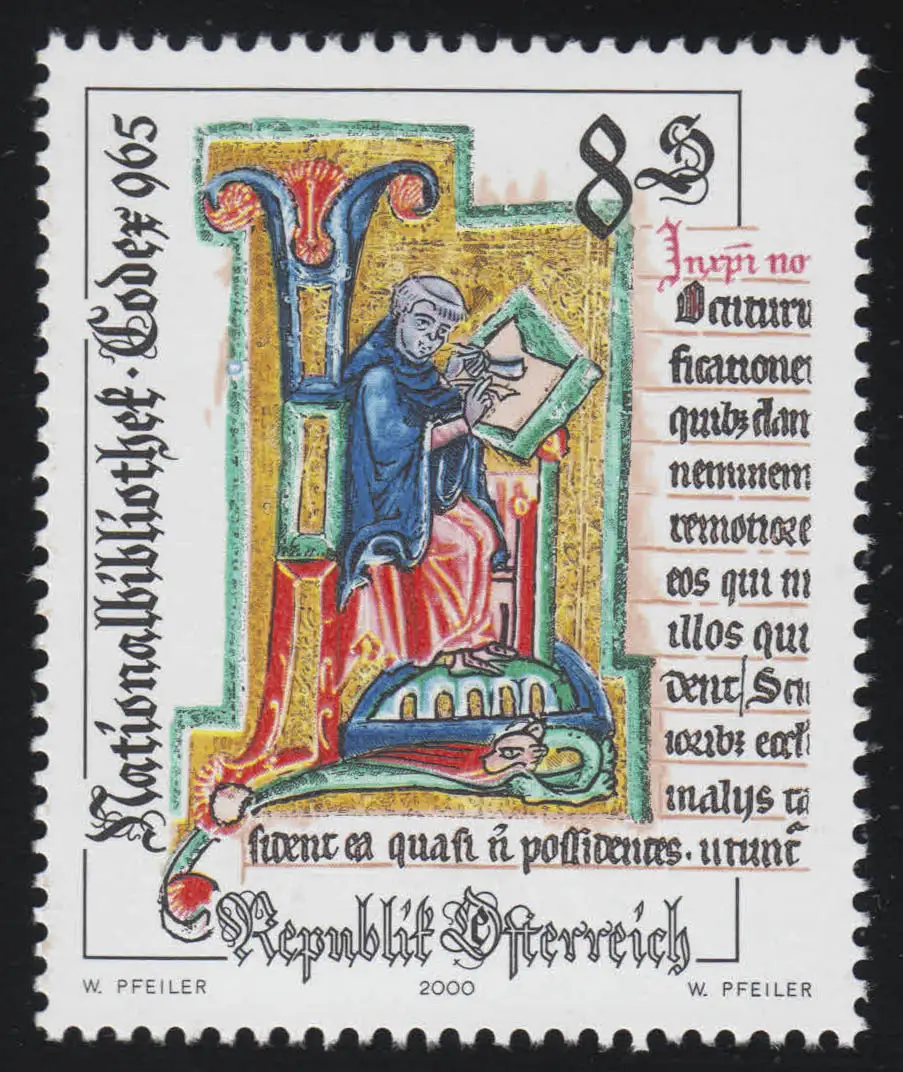 Nationalbibliothek · Codex 965
8 S
Inxp̄i no
ficatione
quibꝫ dam
neminem
remotiore
eos qui in
illos qui
dent
maliſs ta
ſident ea quaſi n̄ poſſidentes.
Republik Öſterreich
W. PFEILER
2000
W. PFEILER